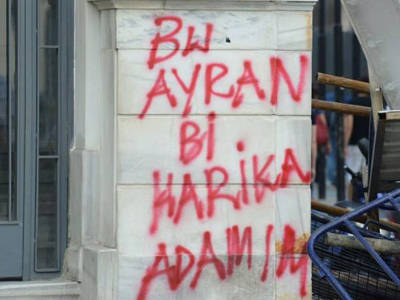 Bw
AYRAN
Bi
HARiKA
ADAMIM